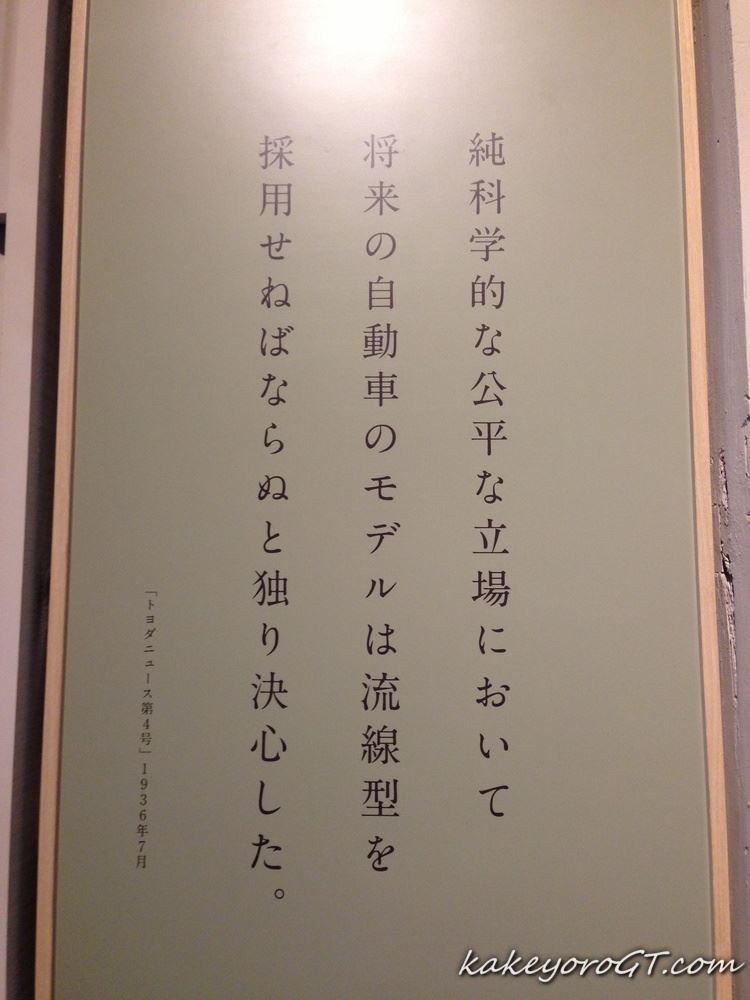 純科学的な公平な立場において
将来の自動車のモデルは流線型を
採用せねばならぬと独り決心した。
「トヨダニュース第4号」1936年7月
kakeyoroGT.com